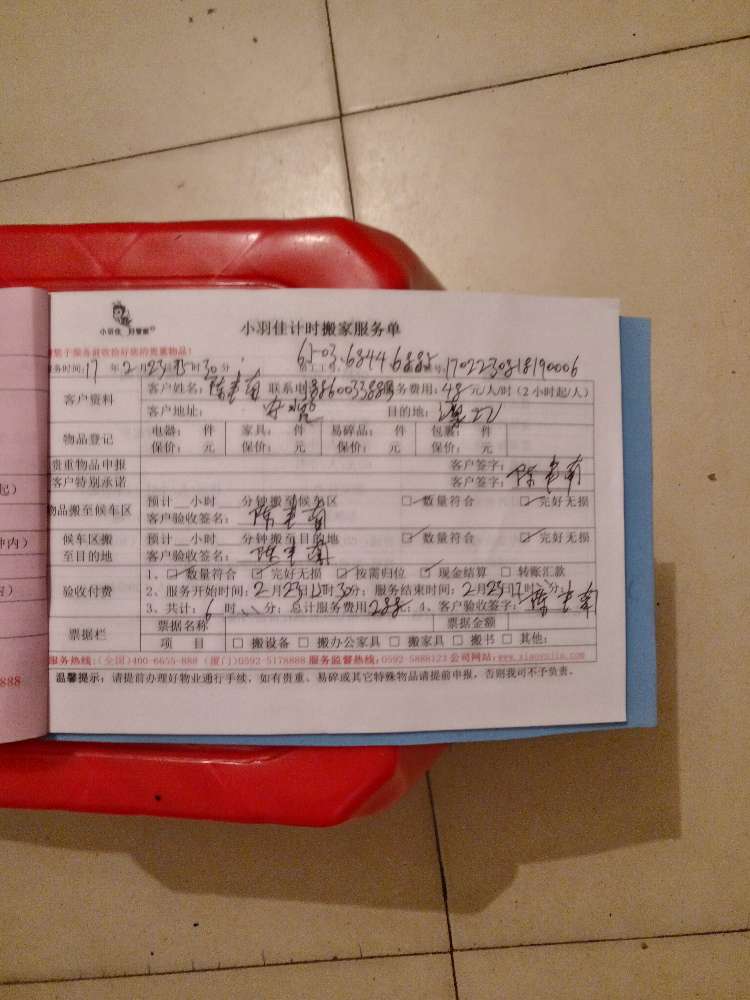 小羽佳 好管家
小羽佳计时搬家服务单
服务时间:17年2月23日15时30分 员工工号: 6503.6844.6885 1702230818190006
客户资料
客户姓名: 联系电话 服务费用:48元/人/时(2小时起/人)
客户地址: 目的地:
物品登记
电器: 件 家具: 件 易碎品: 件 包裹: 件
保价: 元 保价: 元 保价: 元 保价: 元
贵重物品申报 客户签字:
客户特别承诺 客户签字:
物品搬至候车区
预计__小时__分钟搬至候车区 ☑数量符合 ☑完好无损
客户验收签名:
候车区搬至目的地
预计__小时__分钟搬至目的地 ☑数量符合 ☑完好无损
客户验收签名:
验收付费
1、☑数量符合 ☑完好无损 ☑按需归位 ☑现金结算 □转账汇款
2、服务开始时间:2月23日 时30分; 服务结束时间:2月23日17时 分;
3、共计:6时 分; 总计服务费用288; 4、客户验收签字:
票据栏
票据名称 票据金额
项 目 □搬设备 □搬办公家具 □搬家具 □搬书 □其他:
服务热线:(全国)400-6655-888 (厦门)0592-5178888 服务监督热线:0592-5888123 公司网站:www.xiaoyujia.com
温馨提示: 请提前办理好物业通行手续, 如有贵重、易碎或其它特殊物品请提前申报, 否则我司不予负责。
888